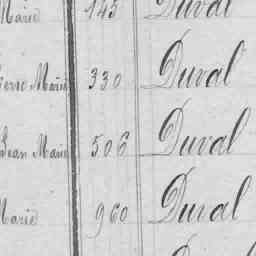 Marie 145 Duval
Pierre Marie 330 Duval
Jean Marie 506 Duval
Marie 960 Duval